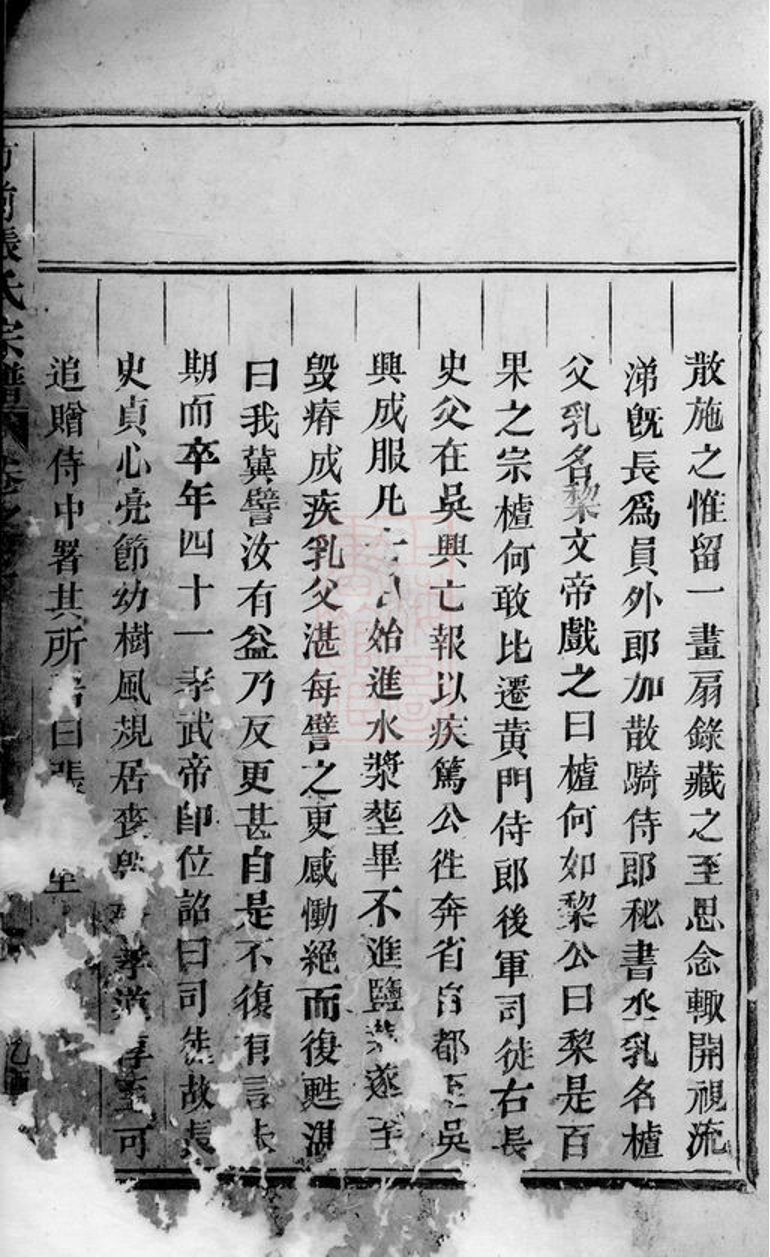 散施之惟留一畫扇錄藏之至思念輙開視流
涕旣長爲員外郎加散騎侍郎秘書丞乳名樝
父乳名棃文帝戲之曰樝何如棃公曰棃是百
果之宗樝何敢比遷黄門侍郎後軍司徒右長
史父在吳興亡報以疾篤公徃奔省自都至吳
興成服凡十日始進水漿塟畢不進鹽菜遂至
毁瘠成疾乳父湛每譬之更感慟絕而復甦湛
曰我冀譬汝有益乃反更甚自是不復有言未
期而卒年四十一孝武帝卽位詔曰司徒故長
史貞心亮節幼樹風規居喪孝道淳至可
追贈侍中署其所居曰張
前張氏宗譜 卷之